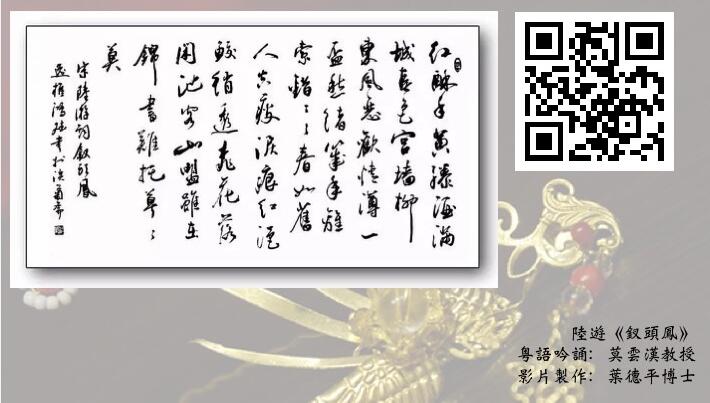 紅酥手黃縢酒滿
城春色宮墻柳
東風惡歡情薄一
盃愁緒幾年離
索錯〻〻春如舊
人空瘦淚痕紅浥
鮫綃透桃花落
閑池閣山盟雖在
錦書難托莫〻
莫
宋陸游詞釵頭鳳
陸遊《釵頭鳳》
粵語吟誦：莫雲漢教授
影片製作：葉德平博士